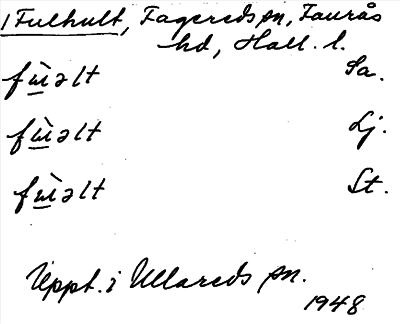 1 Fulhult, Fagereds sn, Faurås
hd, Hall. l.
fù̲əlt Sa.
fù̲əlt Lj.
fù̲əlt St.
Uppt. i Ullareds sn.
1948